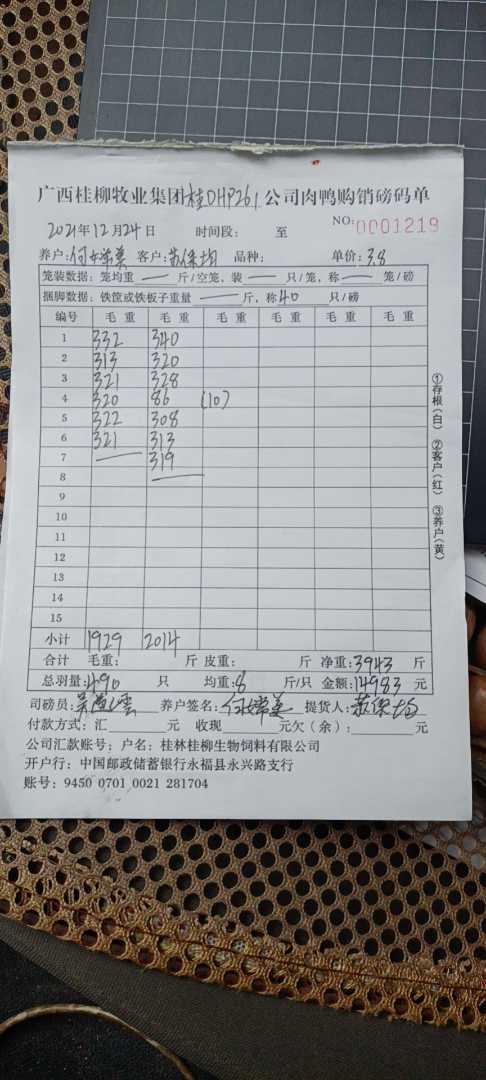 广西桂柳牧业集团桂DHP261公司肉鸭购销磅码单
2021年12月24日 时间段: 至 NO: 0001219
养户: 客户: 品种: 单价: 3.8
笼装数据: 笼均重 — 斤/空笼, 装 — 只/笼, 称 — 笼/磅
捆脚数据: 铁筐或铁板子重量 — 斤, 称 40 只/磅
编号 毛重 毛重 毛重 毛重 毛重 毛重
1 332 340
2 313 320
3 321 328
4 320 86 (10)
5 322 308
6 321 313
7 — 319
8 —
9
10
11
12
13
14
15
小计 1929 2014
合计 毛重: 斤 皮重: 斤 净重: 3943 斤
总羽量: 490 只 均重: 8 斤/只 金额: 14983 元
司磅员: 养户签名: 提货人:
付款方式: 汇 元 收现 元欠(余): 元
公司汇款账号: 户名: 桂林桂柳生物饲料有限公司
开户行: 中国邮政储蓄银行永福县永兴路支行
账号: 9450 0701 0021 281704
①存根(白) ②客户(红) ③养户(黄)